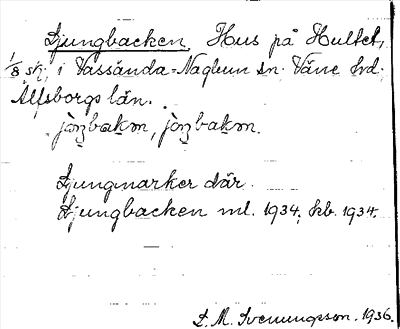 Ljungbacken. Hus på Hultet,
1/8 skj, i Vassända-Naglum sn. Väne hd.
Älfsborgs län.
Ljungmarker där.
Ljungbacken ml. 1934, kb. 1934.
L. M. Svenungsson. 1936.